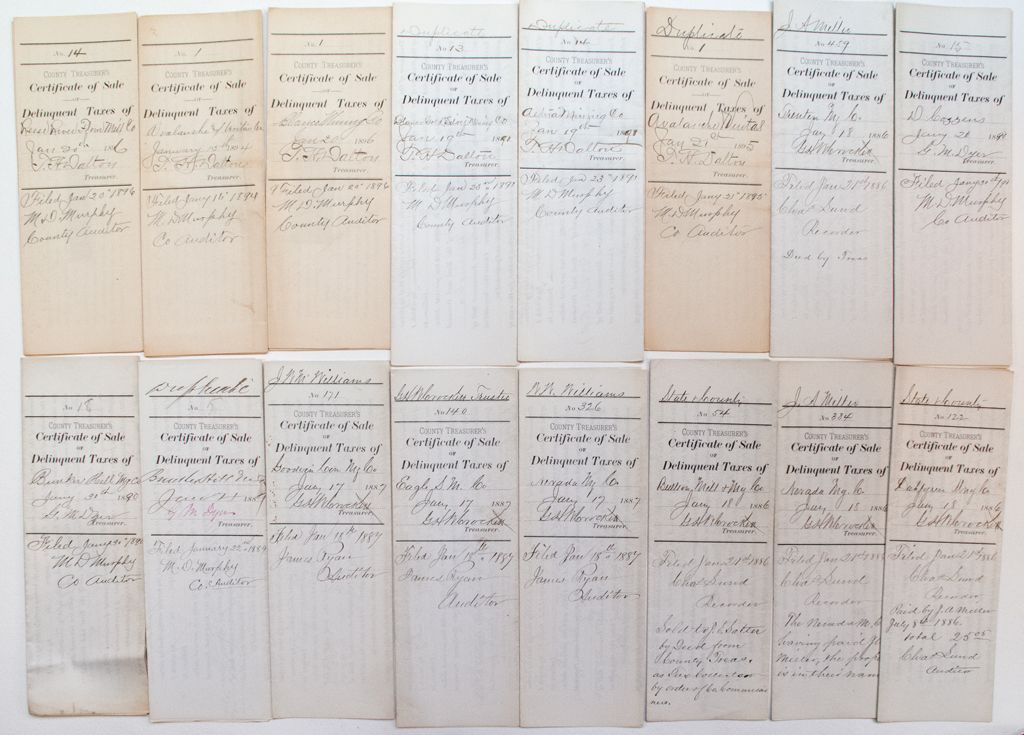 No. 14
COUNTY TREASURER'S
Certificate of Sale
OF
Delinquent Taxes of
Reese River Mill Co
Jan 20th 1896
T. H. Dalton
Treasurer.
Filed Jan 20th 1896
M. D. Murphy
County Auditor
No. 1
COUNTY TREASURER'S
Certificate of Sale
OF
Delinquent Taxes of
Avalanche &
January 15th 1894
T. H. Dalton
Treasurer.
Filed Jany 15th 1894
M. D. Murphy
Co Auditor
No. 1
COUNTY TREASURER'S
Certificate of Sale
OF
Delinquent Taxes of
Mining Co
Jan 20 1896
T. H. Dalton
Treasurer.
Filed Jan 20th 1896
M. D. Murphy
County Auditor
Duplicate
No. 13
COUNTY TREASURER'S
Certificate of Sale
OF
Delinquent Taxes of
Mining Co
Jan 19th 1891
T. H. Dalton
Treasurer.
Filed Jan 23rd 1891
M D Murphy
County Auditor
Duplicate
No. 14
COUNTY TREASURER'S
Certificate of Sale
OF
Delinquent Taxes of
Mining Co
Jan 19th 1891
T. H. Dalton
Treasurer.
Filed Jan 23rd 1891
M D Murphy
County Auditor
Duplicate
No. 1
COUNTY TREASURER'S
Certificate of Sale
OF
Delinquent Taxes of
Avalanche
Jan 21st 1895
T. H. Dalton
Treasurer.
Filed Jany 21st 1895
M D Murphy
Co Auditor
J. A Miller
No. 459
COUNTY TREASURER'S
Certificate of Sale
OF
Delinquent Taxes of
Trenton
Jany 18 1886
Treasurer.
Filed Jan 21st 1886
Chas Lund
Recorder
Deed by Treas
No.
COUNTY TREASURER'S
Certificate of Sale
OF
Delinquent Taxes of
D Cozzens
Jany 20 1890
G. M Dyer
Treasurer.
Filed Jany
M. D Murphy
Co Auditor
No. 18
COUNTY TREASURER'S
Certificate of Sale
OF
Delinquent Taxes of
Bunker Hill Mg Co
Jany 20th 1890
G. M Dyer
Treasurer.
Filed Jany 20th 1890
M D Murphy
Co Auditor
Duplicate
No.
COUNTY TREASURER'S
Certificate of Sale
OF
Delinquent Taxes of
Bunker Hill
Jany 21 1889
G M Dyer
Treasurer.
Filed January 22nd 1889
M. D. Murphy
Co. Auditor
J. W Williams
No. 171
COUNTY TREASURER'S
Certificate of Sale
OF
Delinquent Taxes of
Goodwin Mg Co
Jany 17 1887
Treasurer.
Filed Jan 18th 1887
James Ryan
Auditor
Trustee
No. 140
COUNTY TREASURER'S
Certificate of Sale
OF
Delinquent Taxes of
Eagle S. M. Co
Jany 17 1887
Treasurer.
Filed Jan 18th 1887
James Ryan
Auditor
W. Williams
No. 326
COUNTY TREASURER'S
Certificate of Sale
OF
Delinquent Taxes of
Nevada M. Co
Jany 17 1887
Treasurer.
Filed Jan 18th 1887
James Ryan
Auditor
State & County
No. 54
COUNTY TREASURER'S
Certificate of Sale
OF
Delinquent Taxes of
Bullion Mill & Mg Co
Jany 18 1886
Treasurer.
Filed Jan 21st 1886
Chas Lund
Recorder
Sold to J. C Salter
by Deed from
County Treas.
as
by order of Co Commissio
ners.
J. A Miller
No. 334
COUNTY TREASURER'S
Certificate of Sale
OF
Delinquent Taxes of
Nevada Mg. Co
Jany 18 1886
Treasurer.
Filed Jan 21st 1886
Chas Lund
Recorder
The Nevada M. C
having paid J.
Miller, the prop
is in their nam
State & County
No. 122
COUNTY TREASURER'S
Certificate of Sale
OF
Delinquent Taxes of
Mng Co
Jany 18 1886
Treasurer.
Filed Jan 21st 1886
Chas Lund
Recorder
Paid by J. A Miller
July 8th 1886.
total 25 05
Chas Lund
Auditor